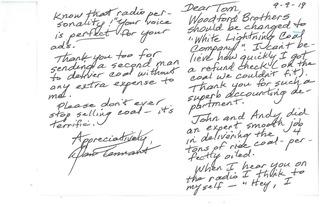 9-9-19
Dear Tom,
Woodford Brothers
should be changed to
"White Lightning Coal
Company". I can't be-
lieve how quickly I got
a refund check (on the
coal we couldn't fit).
Thank you for such a
superb accounting de-
partment.
John and Andy did
an expert smooth job
in delivering the 4
tons of rice coal - per-
fectly oiled.
When I hear you on
the radio I think to
myself - "Hey, I
know that radio per-
sonality!" Your voice
is perfect for your
ads.
Thank you too for
sending a second man
to deliver coal without
any extra expense to
me.
Please don't ever
stop selling coal - it's
terrific.
Appreciatively,
Tennant